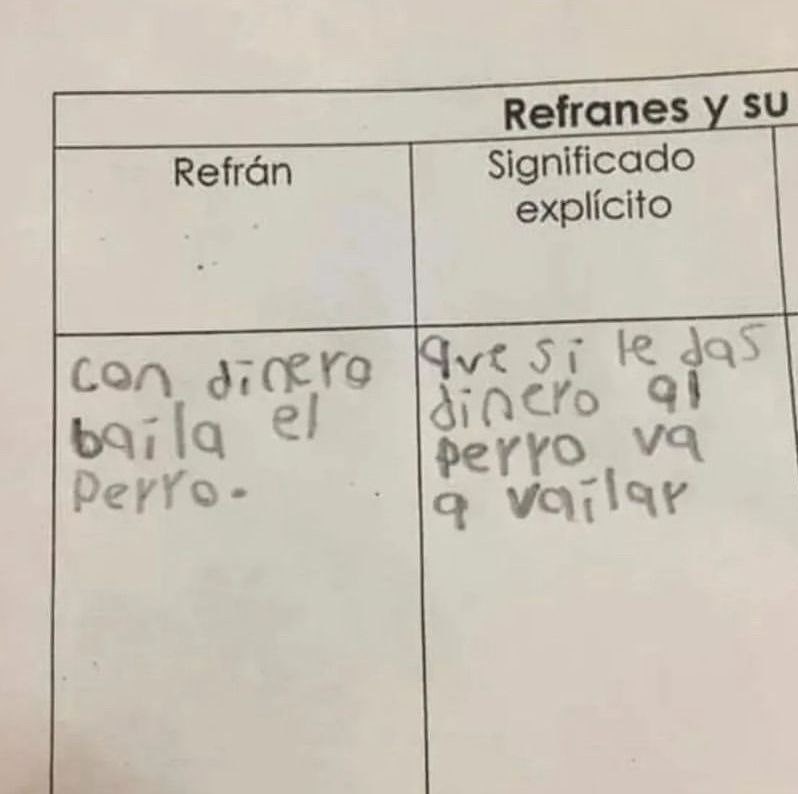 Refranes y su
Refrán
Significado
explícito
con dinero
baila el
perro.
que si le das
dinero al
perro va
a vailar